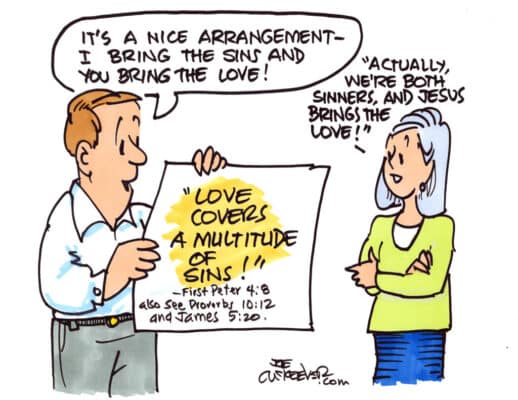 IT'S A NICE ARRANGEMENT—
I BRING THE SINS AND
YOU BRING THE LOVE!
"ACTUALLY,
WE'RE BOTH
SINNERS, AND JESUS
BRINGS THE
LOVE!"
"LOVE
COVERS
A MULTITUDE
OF
SINS!"
—First Peter 4:8
also see Proverbs 10:12
and James 5:20.
JOE
.com